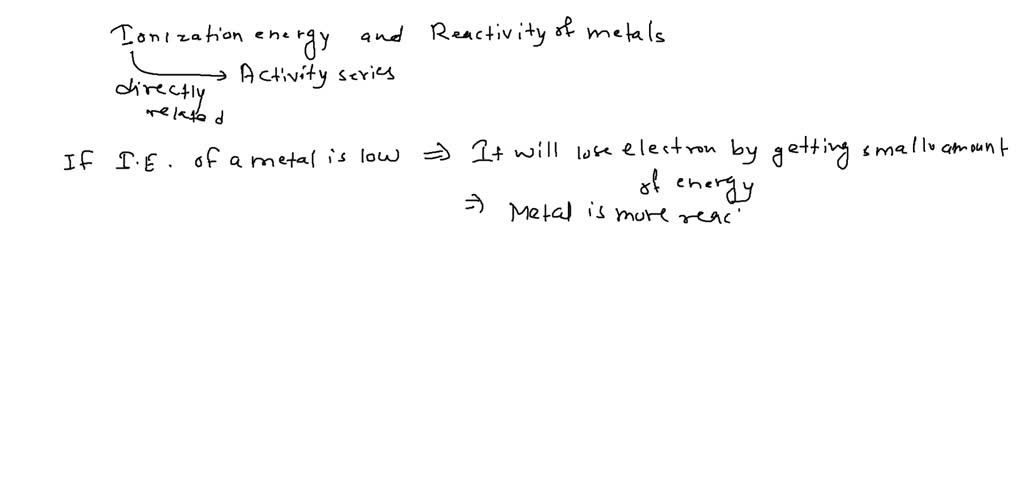 Ionization energy and Reactivity of metals
→ Activity series
directly
related
If I.E. of a metal is low ⇒ It will lose electron by getting small amount
of energy
⇒ Metal is more reac